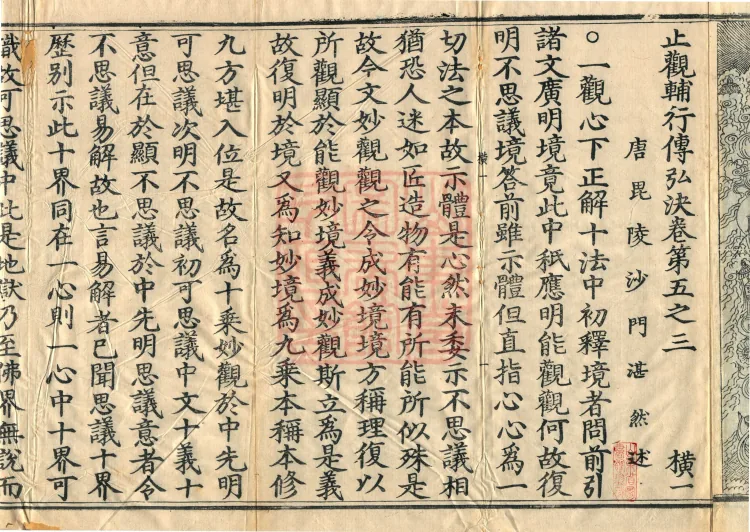 止觀輔行傳弘決卷第五之三　橫一
唐毘陵沙門湛然述
○一觀心下正解十法中初釋境者問前引
諸文廣明境竟此中秖應明能觀觀何故復
明不思議境答前雖示體但直指心心為一
橫一　一
切法之本故示體是心然未委示不思議相
猶恐人迷如匠造物有能有所能所似殊是
故今文妙觀觀之令成妙境境方稱理復以
所觀顯於能觀妙境義成妙觀斯立為是義
故復明於境又為知妙境為九乘本稱本修
九方堪入位是故名為十乘妙觀於中先明
可思議次明不思議初可思議中文十義十
意但在於顯不思議於中先明思議意者令
不思議易解故也言易解者已聞思議十界
歷別示此十界同在一心則一心中十界可
識故可思議中此是地獄乃至佛界無說而